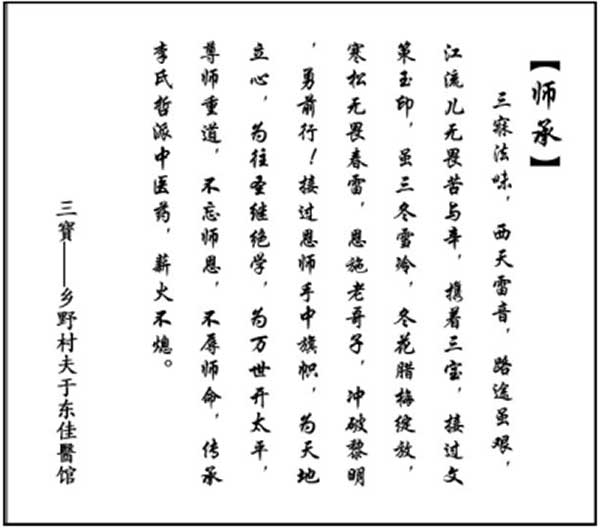 【师承】
三寐法味，西天雷音，路途虽艰，
江流儿无畏苦与辛，携着三宝，接过文
策玉印，虽三冬雪冷，冬花腊梅绽放，
寒松无畏春雷，恩施老哥子，冲破黎明
，勇前行！接过恩师手中旗帜，为天地
立心，为往圣继绝学，为万世开太平，
尊师重道，不忘师恩，不辱师命，传承
李氏哲派中医药，薪火不熄。
三寶——乡野村夫于东佳醫馆